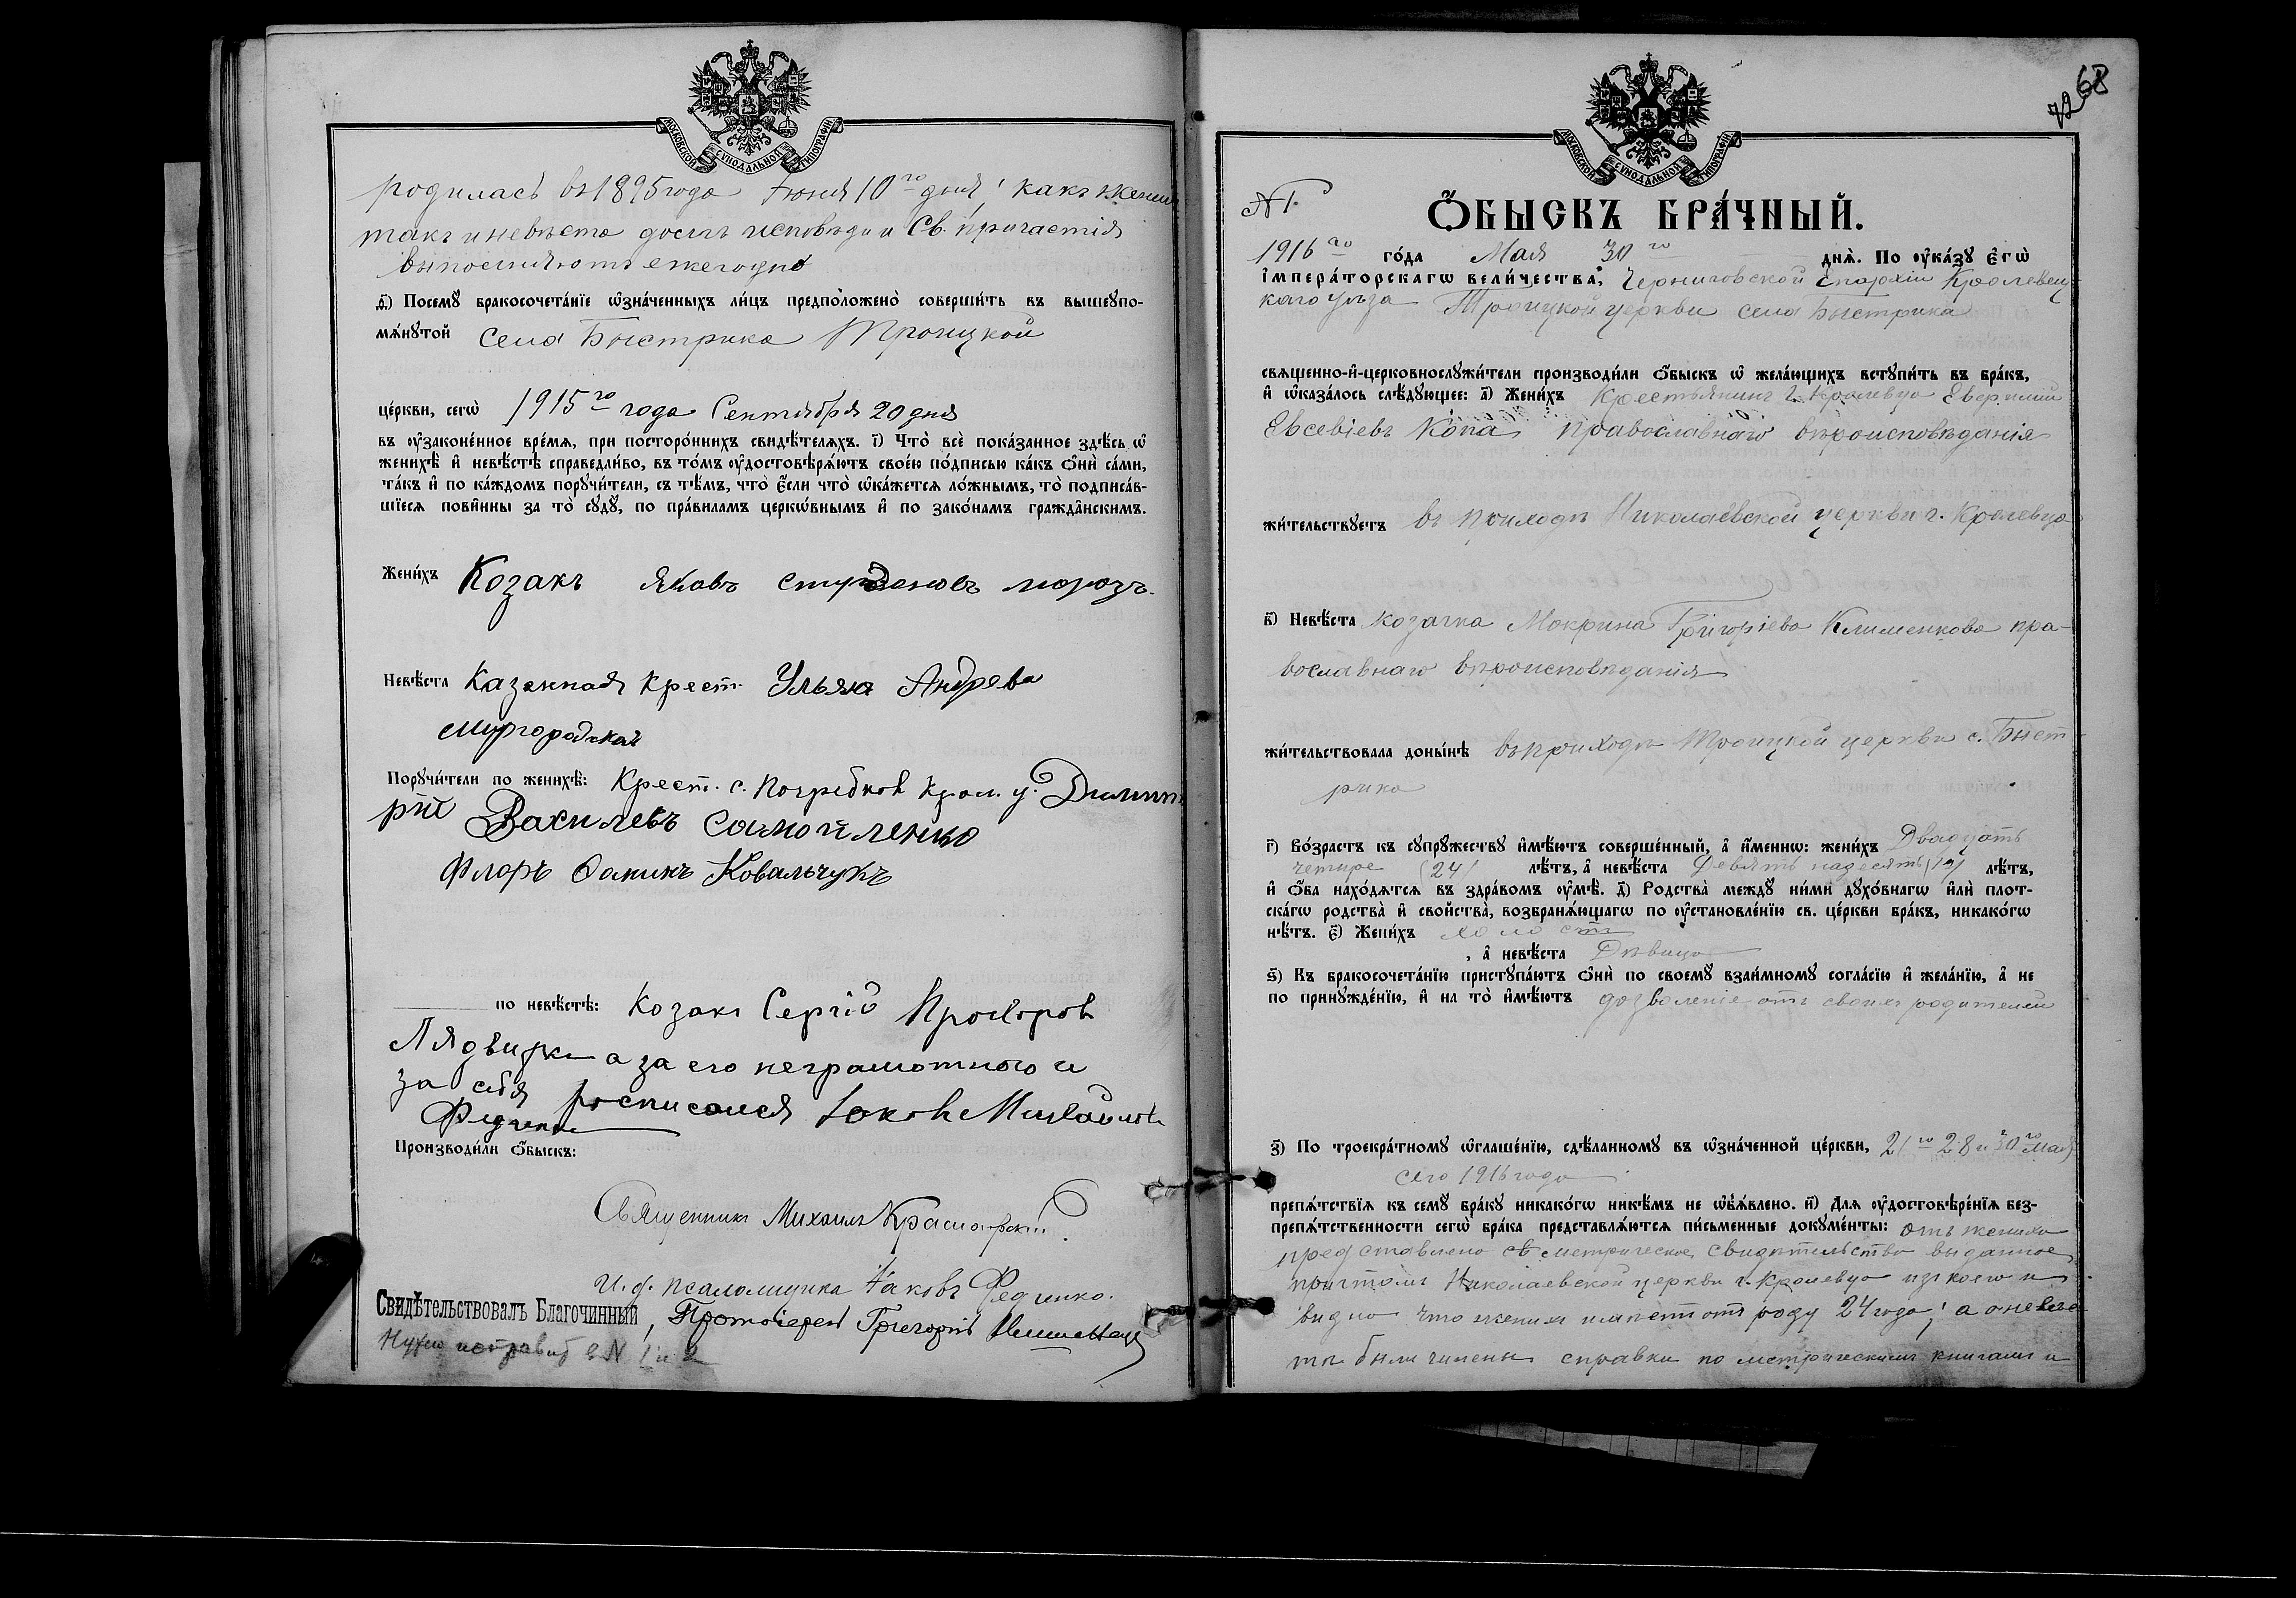 МОСКОВСКОЙ СѴНОДАЛЬНОЙ ТИПОГРАФІИ
родилась въ 1895 года Іюня 10го дня; какъ жених
такъ и невѣста долгъ исповѣди и Св. причастія
выполняютъ ежегодно
д҃) Посемꙋ бракосочета́нїе ѡ҆зна́ченныхъ ли́цъ предположено̀ соверши́ть въ вышеꙋпо-
мѧ́нꙋтой села Быстрика Троицкой
це́ркви, сегѡ̀ 1915го года Сентября 20 дня
въ ᲂу҆зако́ненное вре́мѧ, при посторо́ннихъ свидѣ́телѧхъ. і҃) Что̀ всѐ пока́занное здѣ́сь ѡ҆
женихѣ̀ и҆ невѣ́стѣ справедли́во, въ то́мъ ᲂу҆достовѣрѧ́ютъ свое́ю по́дписью ка́къ ѻ҆нѝ са́ми,
та́къ и҆ по ка́ждомъ порꙋчи́тели, съ тѣ́мъ, что̀ є҆́сли что̀ ѡ҆ка́жетсѧ ло́жнымъ, то̀ подписа́в-
шїесѧ пови́нны за то̀ сꙋдꙋ̀, по пра́виламъ церко́внымъ и҆ по зако́намъ гражда́нскимъ.
Жени́хъ Козакъ Яковъ Морозъ.
Невѣ́ста Казенная крест. Ульяна Андреева
Миргородская
Порꙋчи́тели по женихѣ̀: Крест. с. Погребков Крол. у. Димит
рій Василевъ Самойленко
Флоръ Ковальчукъ
по невѣ́стѣ: Козакъ Сергій Прохоров
Лядвирка а за его неграмотного и
за себя росписался Іаков Михайлов
Федченко
Производи́ли ѻ҆́быскъ:
Священникъ Михаилъ
И. д. псаломщика Іаковъ Федченко.
Свидѣтельствовалъ Благочинный, Протоіерей Григорій
№ 1 и 2
72 68
МОСКОВСКОЙ СѴНОДАЛЬНОЙ ТИПОГРАФІИ
№ 1.
Ѻ҆́БЫСКЪ БРА́ЧНЫЙ.
1916го го́да Мая 30го днѧ̀. По ᲂу҆ка́зꙋ є҆гѡ̀
і҆мпера́торскагѡ вели́чества, Черниговской Епархіи Кролевец-
каго уѣзда Троицкой церкви села Быстрика
свѧщенно-и҆-церковнослꙋжи́тели производи́ли ѻ҆́быскъ ѡ҆ жела́ющихъ встꙋпи́ть въ бра́къ,
и҆ ѡ҆каза́лось слѣ́дꙋющее: а҃) Жени́хъ Крестьянинъ г. Кролевца
Евсевіевъ Копа православнаго вѣроисповѣданія
жи́тельствꙋетъ въ приходѣ Николаевской церкви г. Кролевца
в҃) Невѣ́ста козачка Мокрина Григоріева Клименкова пра-
вославнаго вѣроисповѣданія
жи́тельствовала доны́нѣ въ приходѣ Троицкой церкви с. Быст-
рика
г҃) Во́зрастъ къ сꙋпрꙋ́жествꙋ и҆мѣ́ютъ соверше́нный, а҆ и҆́меннѡ: жени́хъ Двадцать
четыре (24) лѣ́тъ, а҆ невѣ́ста Девятьнадесять (19) лѣ́тъ,
и҆ ѻ҆́ба нахо́дѧтсѧ въ здра́вомъ ᲂу҆мѣ̀. д҃) Родства̀ междꙋ̀ ни́ми дꙋхо́внагѡ и҆лѝ плот-
ска́гѡ родства̀ и҆ сво́йства̀, возбранѧ́ющагѡ по ᲂу҆становле́нїю св. це́ркви бра́къ, никако́гѡ
нѣ́тъ. є҃) Жени́хъ холостъ
, а҆ невѣ́ста Дѣвица
ѕ҃) Къ бракосочета́нїю пристꙋпа́ютъ ѻ҆нѝ по своемꙋ̀ взаи́мномꙋ согла́сїю и҆ жела́нїю, а҆ не
по принꙋжде́нїю, и҆ на то̀ и҆мѣ́ютъ дозволеніе отъ своихъ родителей
з҃) По троекра́тномꙋ ѡ҆глаше́нїю, сдѣ́ланномꙋ въ ѡ҆зна́ченной це́ркви, 21го 28 и 30го Мая
сего 1916 года
препѧ́тствїѧ къ семꙋ̀ бра́кꙋ никако́гѡ никѣ́мъ не ѡ҆б̾ѧ́влено. и҃) Длѧ̀ ᲂу҆достовѣре́нїѧ без-
препѧ́тственности сегѡ̀ бра́ка представлѧ́ютсѧ пи́сьменные докꙋме́нты: отъ жениха
представлено метрическое свидѣтельство выданное
причтомъ Николаевской церкви г. Кролевца изъ коего и
видно что женихъ имѣетъ отъ роду 24 года; а о невѣс-
тѣ были чинены справки по метрическимъ книгамъ и